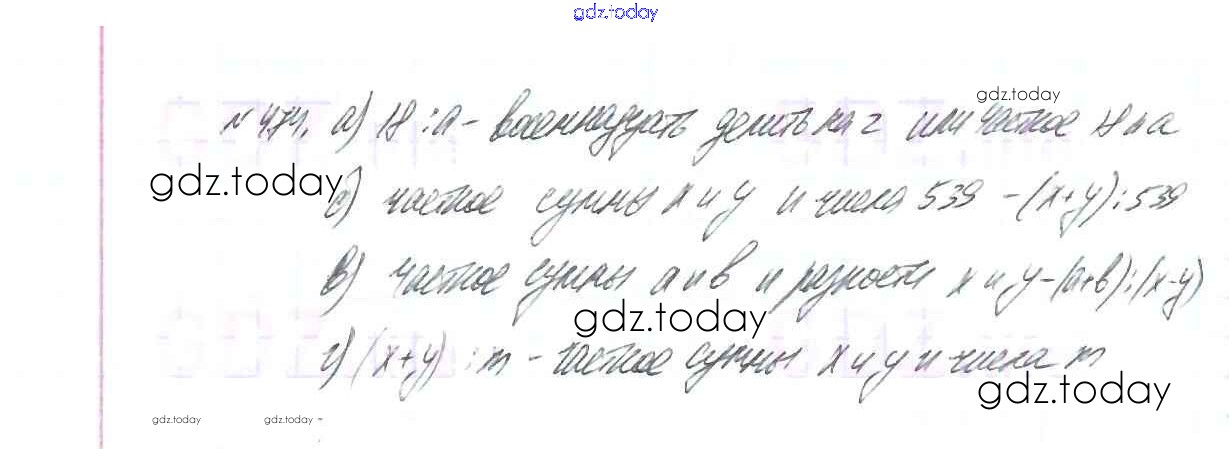 gdz.today
№ 474. а) 18 : а - восемнадцать делить на 2 или частное 18 и а
gdz.today
gdz.today
б) частное суммы x и y и числа 539 - (x+y) : 539
в) частное суммы а и в и разности x и y - (а+в) : (x-y)
gdz.today
г) (x+y) : m - частное суммы x и y и числа m
gdz.today
gdz.today gdz.today -